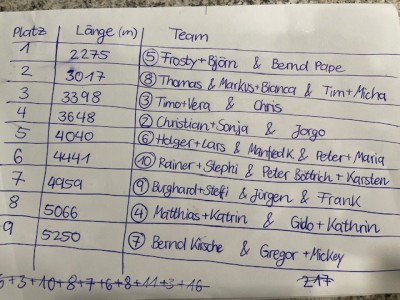 Platz Länge (m) Team
1 2275 ⑤ Frosty+Björn & Bernd Pape
2 3017 ⑧ Thomas & Markus+Bianca & Tim+Micha
3 3398 ③ Timo+Vera & Chris
4 3648 ② Christian+Sonja & Jorgo
5 4040 ⑥ Holger+Lars & Manfred K & Peter+Maria
6 4441 ⑩ Rainer+Stephi & Peter Böttrich+Karsten
7 4959 ⑨ Burghard+Steffi & Jürgen & Frank
8 5066 ④ Matthias+Katrin & Gido+Kathrin
9 5250 ⑦ Bernd & Gregor+Mickey
+3+10+8+7+6+8+11+3+16 217